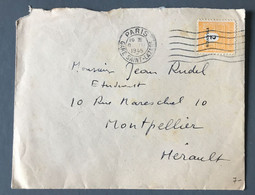 PARIS
Monsieur Jean Rudel
Etudiant
10 Rue Mareschal 10
Montpellier
Hérault